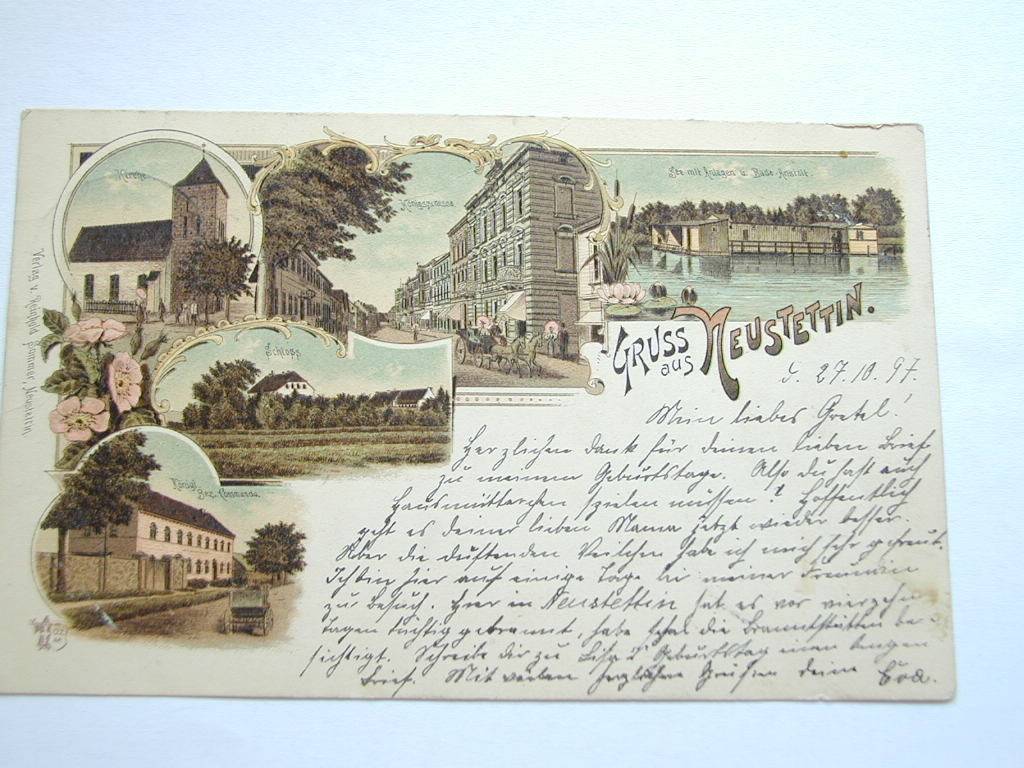 Kirche
Königstrasse
See mit Anlagen u. Bade-Anstalt.
Schloss
Königl.
Bez. Commando.
Gruss
aus
Neustettin.
d. 27.10.97.
Mein liebes Gretel!
Herzlichen Dank für deinen lieben Brief
zu meinem Geburtstage. Also du hast auch
Hausmütterchen spielen müssen? Hoffentlich
geht es deiner lieben Mama jetzt wieder besser.
Über die duftenden Veilchen habe ich mich sehr gefreut.
Ich bin hier auf einige Tage bei meiner Freundin
zu Besuch. Hier in Neustettin hat es vor vierzehn
Tagen tüchtig gebrannt, habe die Brandstätten be-
sichtigt. Schreibe dir zu Geburtstag einen langen
Brief. Mit vielen herzlichen Grüßen deine Eva.
Verlag v. Neustettin.